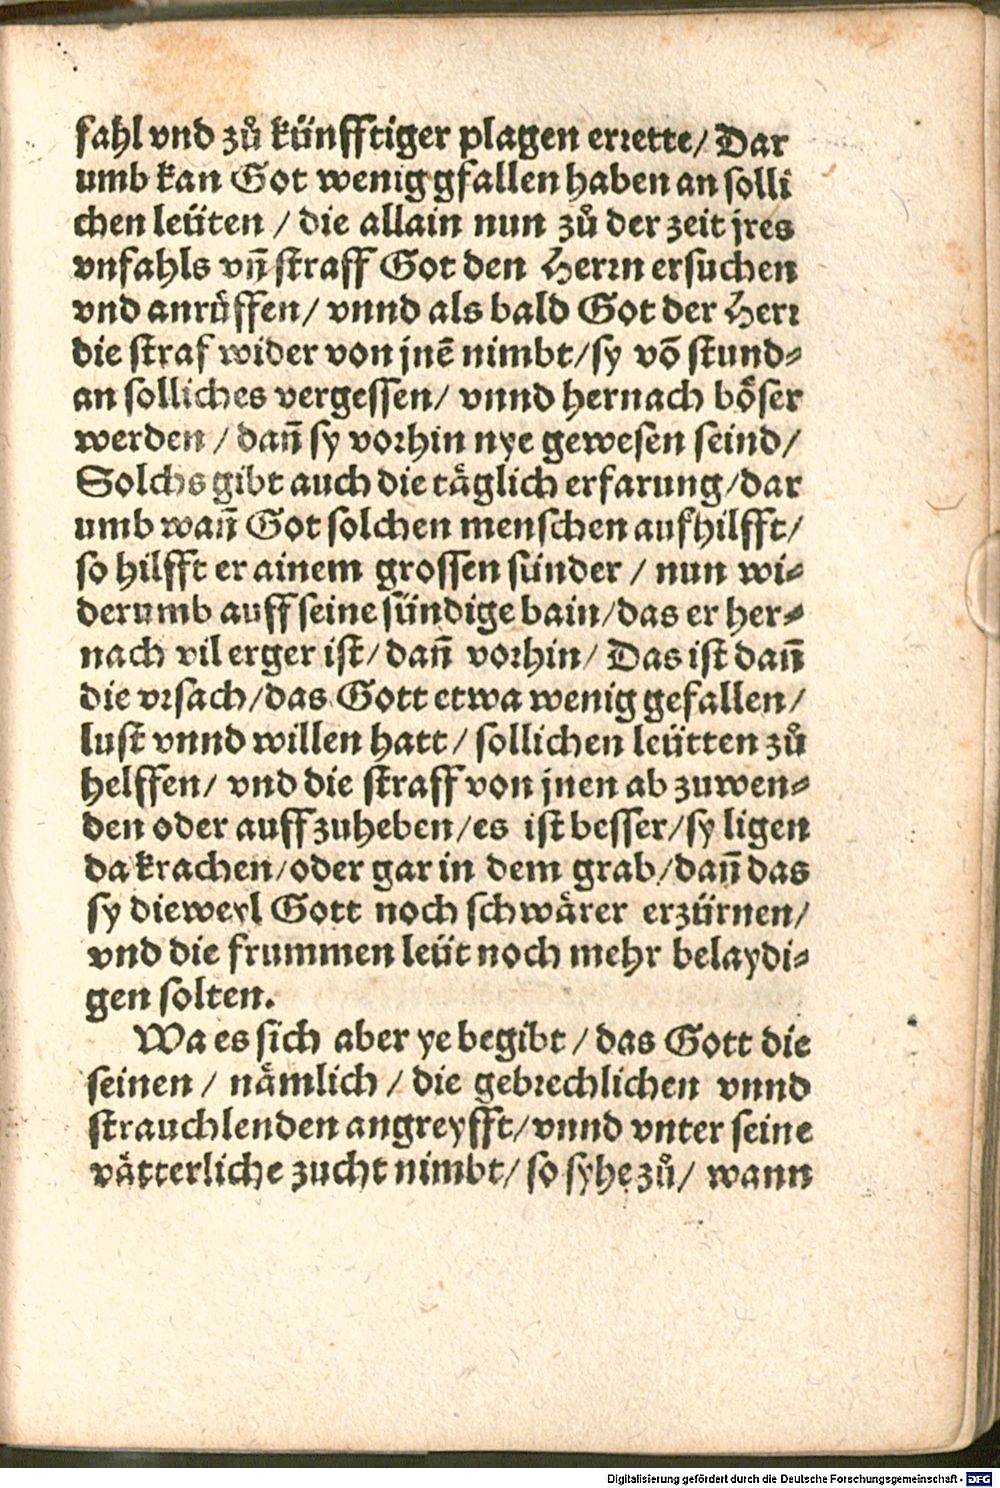 fahl vnd zů künfftiger plagen errette/ Dar
umb kan Got wenig gfallen haben an solli
chen leüten / die allain nun zů der zeit jres
vnfahls vn̄ straff Got den Herrn ersuchen
vnd anrůffen/ vnnd als bald Got der Herr
die straf wider von jnē nimbt/sy vō stund⸗
an solliches vergessen/ vnnd hernach böser
werden / dan̄ sy vorhin nye gewesen seind/
Solchs gibt auch die täglich erfarung/dar
umb wan̄ Got solchen menschen aufhilfft/
so hilfft er ainem grossen sünder / nun wi⸗
derumb auff seine sündige bain/das er her⸗
nach vil erger ist/ dan̄ vorhin/ Das ist dan̄
die vrsach/das Gott etwa wenig gefallen/
lust vnnd willen hatt/ sollichen leütten zů
helffen/ vnd die straff von jnen ab zuwen⸗
den oder auff zuheben/es ist besser/sy ligen
da krachen/oder gar in dem grab/dan̄ das
sy dieweyl Gott noch schwärer erzürnen/
vnd die frummen leüt noch mehr belaydi⸗
gen solten.
Wa es sich aber ye begibt / das Gott die
seinen / nämlich / die gebrechlichen vnnd
strauchlenden angreyfft/vnnd vnter seine
vätterliche zucht nimbt/ so syhe zů/ wann
Digitalisierung gefördert durch die Deutsche Forschungsgemeinschaft - DFG